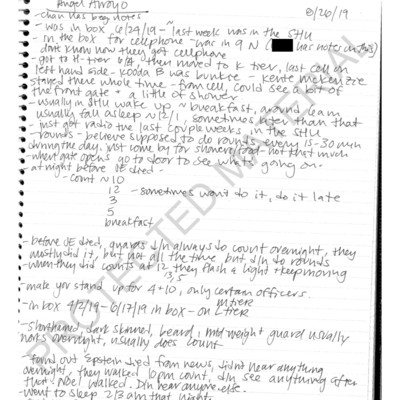 Angel Arroyo
8/26/19
- chan has beg notes
- was in box 6/24/19 - ~last week was in the SHU
- in the box for cellphone - was in 9 N ( has notes on this)
don't know how they got cellphone
- got to H-tier 6/A, then moved to K tier, last cell on
left hand side - Kooda B was bunkie -
stayed there whole time - from cell, could see a bit of
the front gate + a little of shower
- usually in SHU wake up ~ breakfast, around 6am
usually fall asleep ~12/1, sometimes later than that
- just got radio the last couple weeks in the SHU
- rounds - believe supposed to do rounds every 15-30 min
during the day. just come by for showers/food - not that much
- when gate opens go to door to see what's going on -
- at night before JE died -
- count ~ 10
12 - sometimes won't do it, do it late
3
5
breakfast
- before JE died, guards d/n always do count overnight, they
mostly did it, but not all the time but d/n do rounds
- when they did counts at 12, 3, 5 they flash a light + keep moving
- make you stand up for 4 + 10, only certain officers
- in box 4/2/19 - 6/17/19 in box - on L tier
M tier
- short haired, dark skinned, beard, mid weight guard usually
not overnight, usually does count
- found out Epstein died from news, didn't hear anything
overnight, they walked 10pm count, d/n see anything after
that. Noel walked. D/n hear anyone else.
- went to sleep 2/3 am that night
PROTECTED MATERIAL